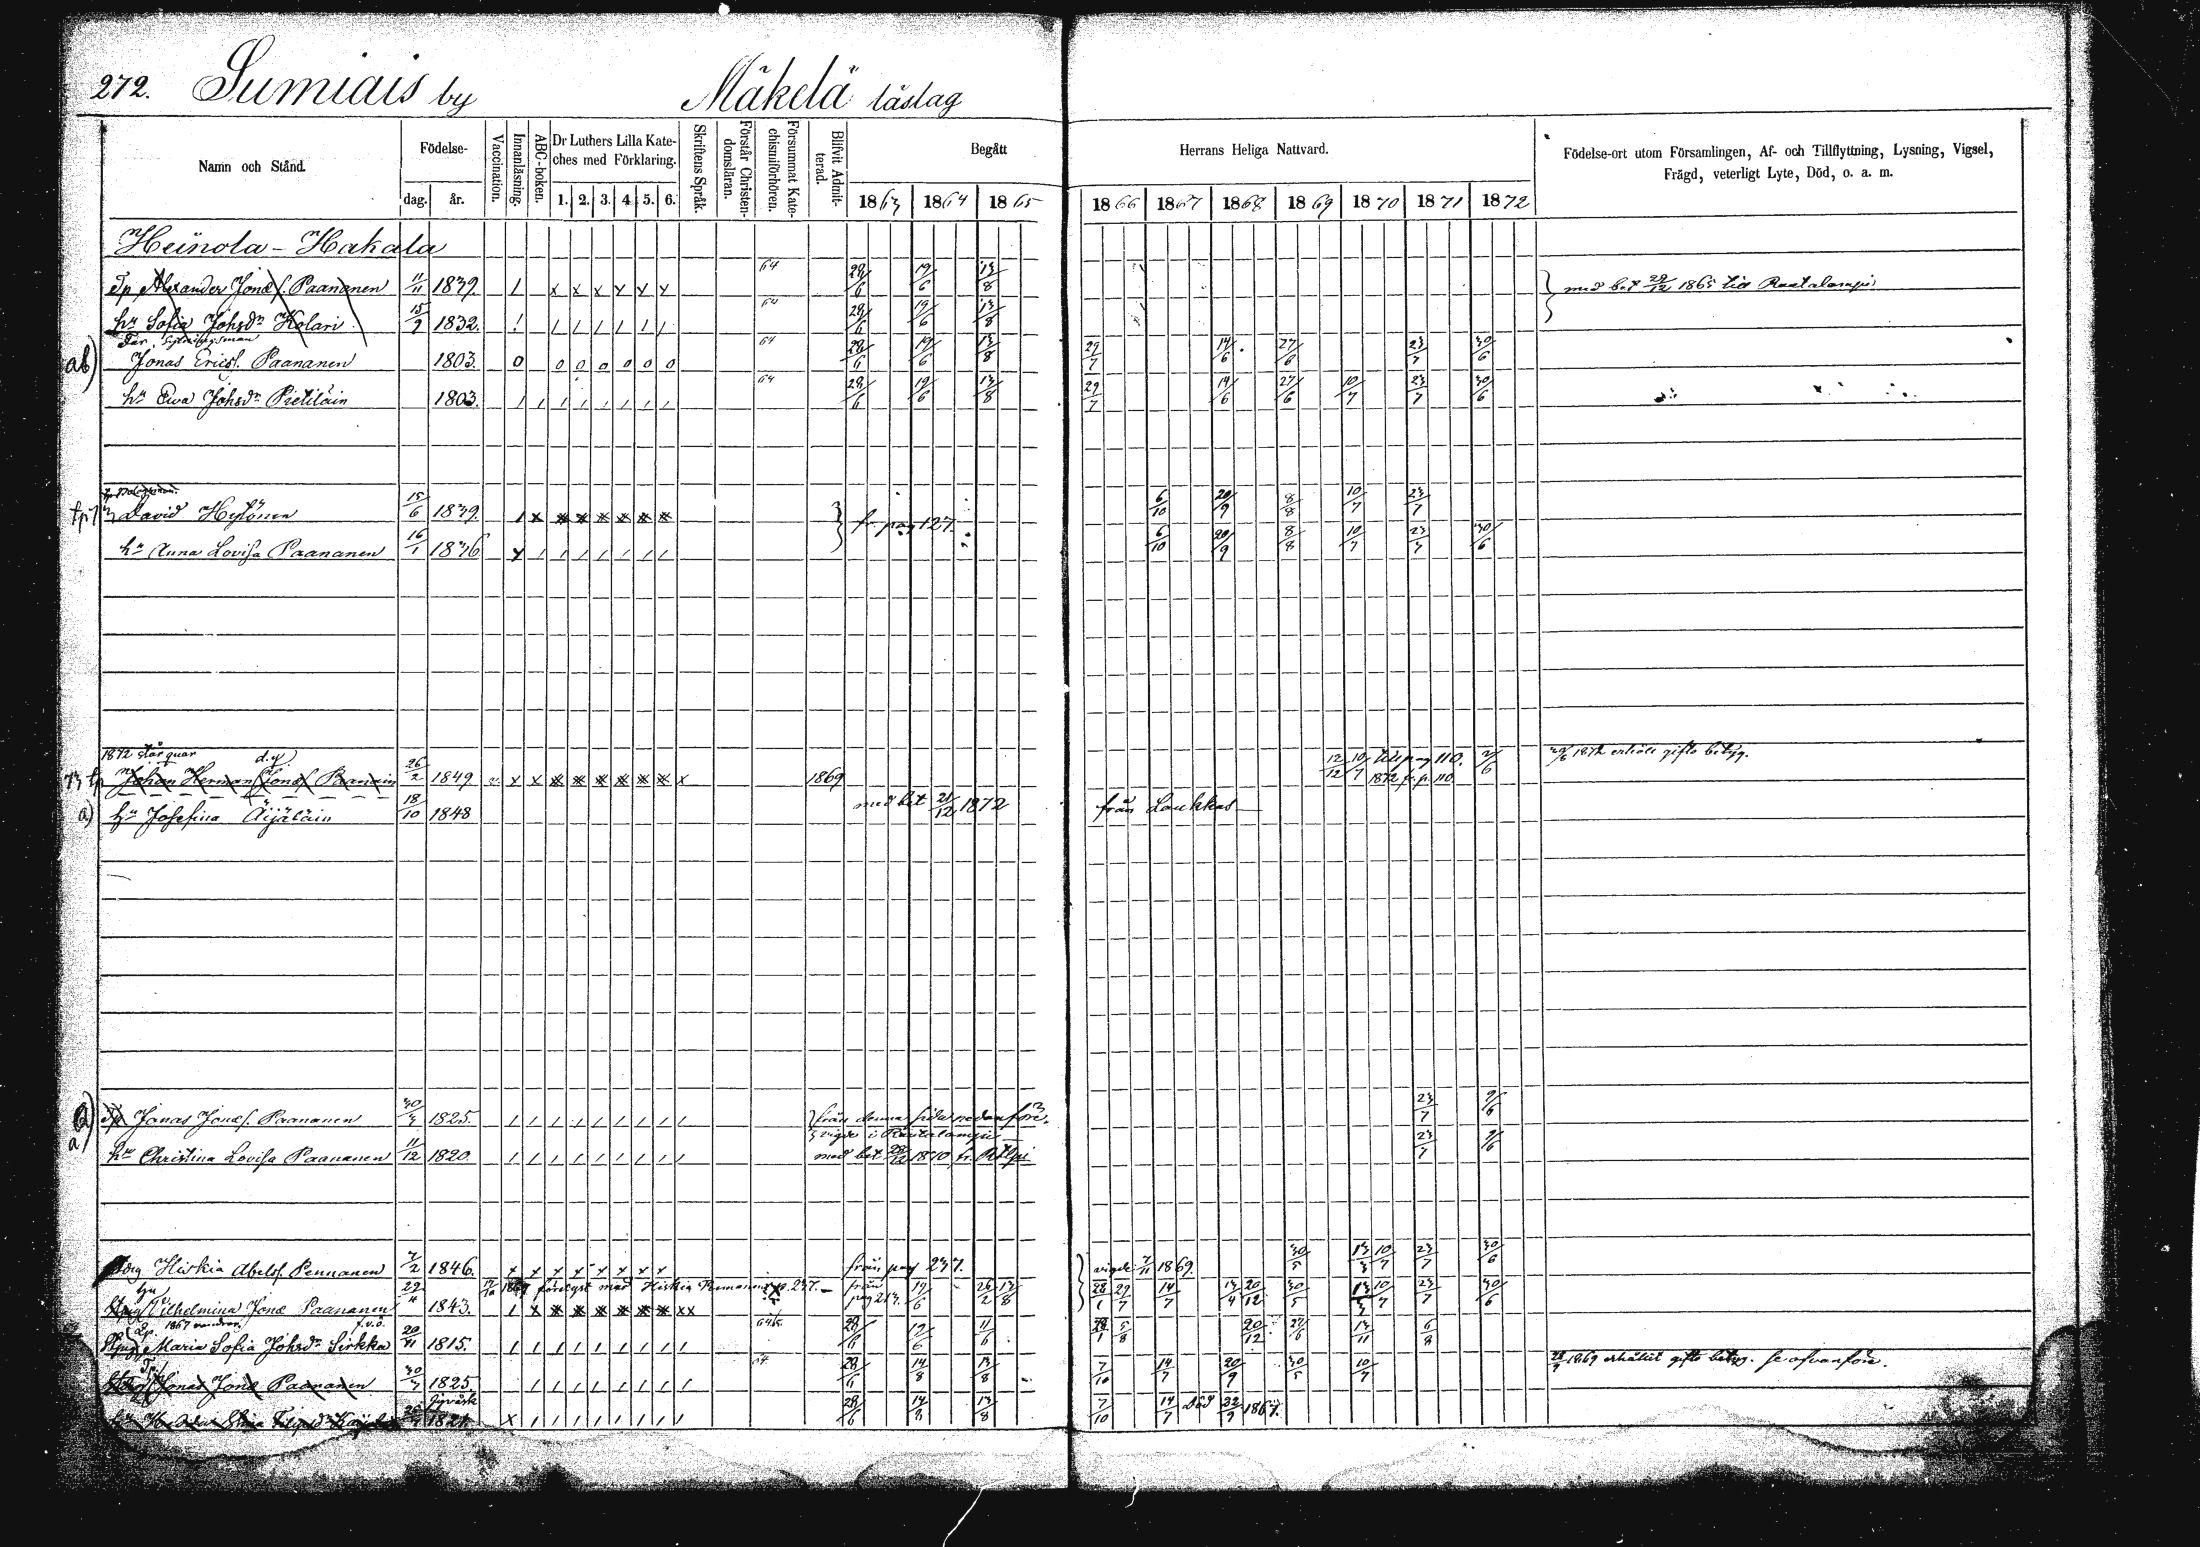 272. Sumiais by Mäkelä läslag
Namn och Stånd.
Födelse-
dag. år.
Vaccination.
Innanläsning.
ABC-boken.
Dr Luthers Lilla Kate-
ches med Förklaring.
1. 2. 3. 4. 5. 6.
Skriftens Språk.
Förstår Christen-
domsläran.
Försummat Kate-
chismiförhören.
Blifvit Admit-
terad.
Begått Herrans Heliga Nattvard.
1863 1864 1865 1866 1867 1868 1869 1870 1871 1872
Födelse-ort utom Församlingen, Af- och Tillflyttning, Lysning, Vigsel,
Frägd, veterligt Lyte, Död, o. a. m.
Heinola - Hakala
Tp Alexander Jonæ f. Paananen 11/11 1839 64 28/6 19/6 13/8 med bet 29/12 1865 till Rautalampi
hu Sofia Johsdr Kolari 15/9 1832. 64 28/6 19/6 13/8
Far
Jonas Ericsf. Paananen 1803. 64 28/6 19/6 13/8 29/7 14/6 27/6 23/7 30/6
hu Ewa Johsdr Pietiläin 1803. 64 28/6 19/6 13/8 29/7 14/6 27/6 10/7 23/7 30/6
David Hytönen 15/6 1839. fr. pag 127. 6/10 20/9 8/8 10/7 23/7
hu Anna Lovisa Paananen 16/1 1836 6/10 20/9 8/8 10/7 23/7 30/6
1872 står quar d.y.
Johan Herman Jonæ f. 26/2 1849 1869 12/12 10/7 till pag 110. 2/6 1872 erhöll gifto betyg.
1872 fr. p. 110
hu Josefina Äijäläin 18/10 1848 med bet 21/12 1872 från Laukkas
Jonas Jonæ f. Paananen 30/3 1825. från denna sida nedanföre. 23/7 9/6
vigde i Rautalampi
hu Christina Lovisa Paananen 11/12 1820. med bet 28/12 1870 fr. 23/7 9/6
Hiskia Abelsf. Pennanen 7/2 1846. från pag 237. vigde 7/11 1869. 30/5 13/3 10/7 23/7 30/6
Wilhelmina Jonæ Paananen 29/4 1843. förlyst med Hiskia Pennanen p. 237. från pag 213. 19/6 26/2 13/8 28/1 29/7 14/7 13/4 20/12 30/5 13/3 10/7 23/7 30/6
Maria Sofia Johsdr Sirkka 20/11 1815. 28/6 12/6 11/6 28/1 5/8 20/12 27/6 13/11 6/8
Jonas Jonæ Paananen 30/3 1825 64 28/6 14/8 13/8 7/10 14/7 20/9 30/5 10/7 28/9 1869 erhållit gifto betyg. se ofvanföre.
1821 28/6 14/8 13/8 7/10 14/7 död 22/9 1867.